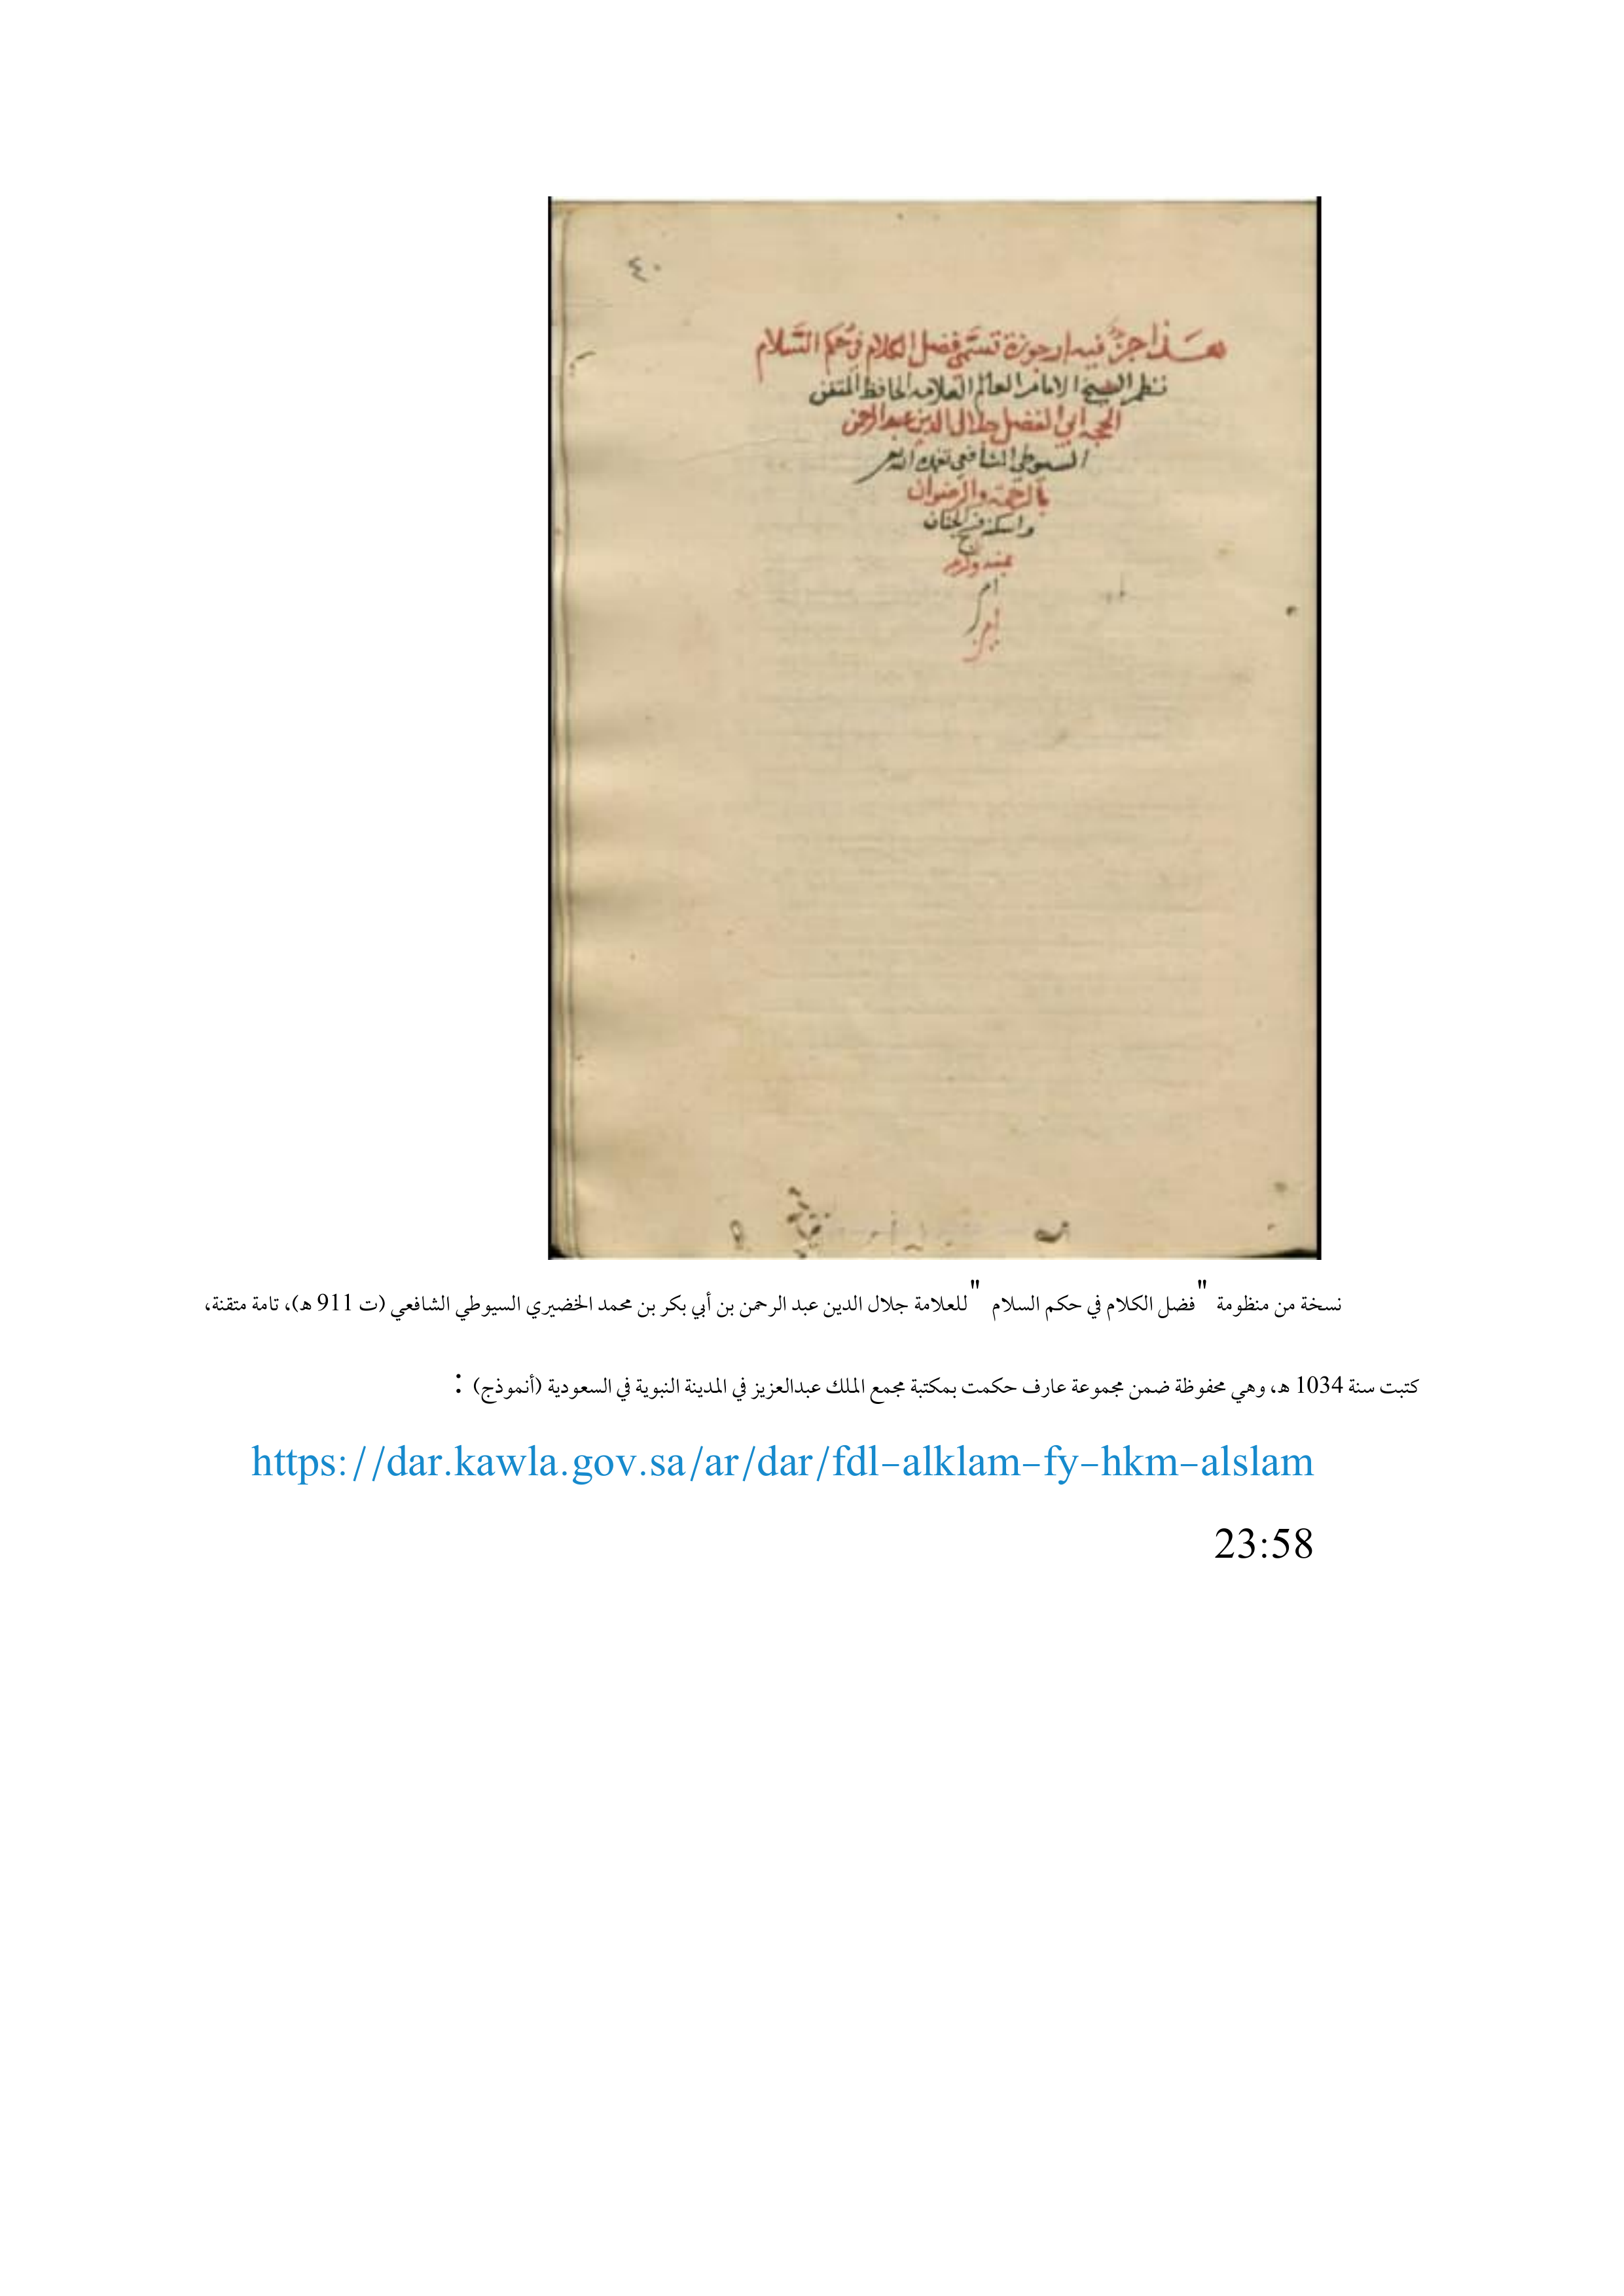 ٤٠
هذا جزؤ فيه ارجوزة تسمى فضل الكلام في حكم السلام
نظم الشيخ الامام العالم العلامه الحافظ المتقن
الحجه ابي الفضل جلال الدين عبد الرحمن
السيوطي الشافعي تغمده الله
بالرحمة والرضوان
واسكنه الجنان
بمنه وكرمه
امين
نسخة من منظومة "فضل الكلام في حكم السلام" للعلامة جلال الدين عبد الرحمن بن أبي بكر بن محمد الخضيري السيوطي الشافعي (ت 911 هـ)، تامة متقنة،
كتبت سنة 1034 هـ، وهي محفوظة ضمن مجموعة عارف حكمت بمكتبة مجمع الملك عبدالعزيز في المدينة النبوية في السعودية (أنموذج) :
https://dar.kawla.gov.sa/ar/dar/fdl-alklam-fy-hkm-alslam
23:58